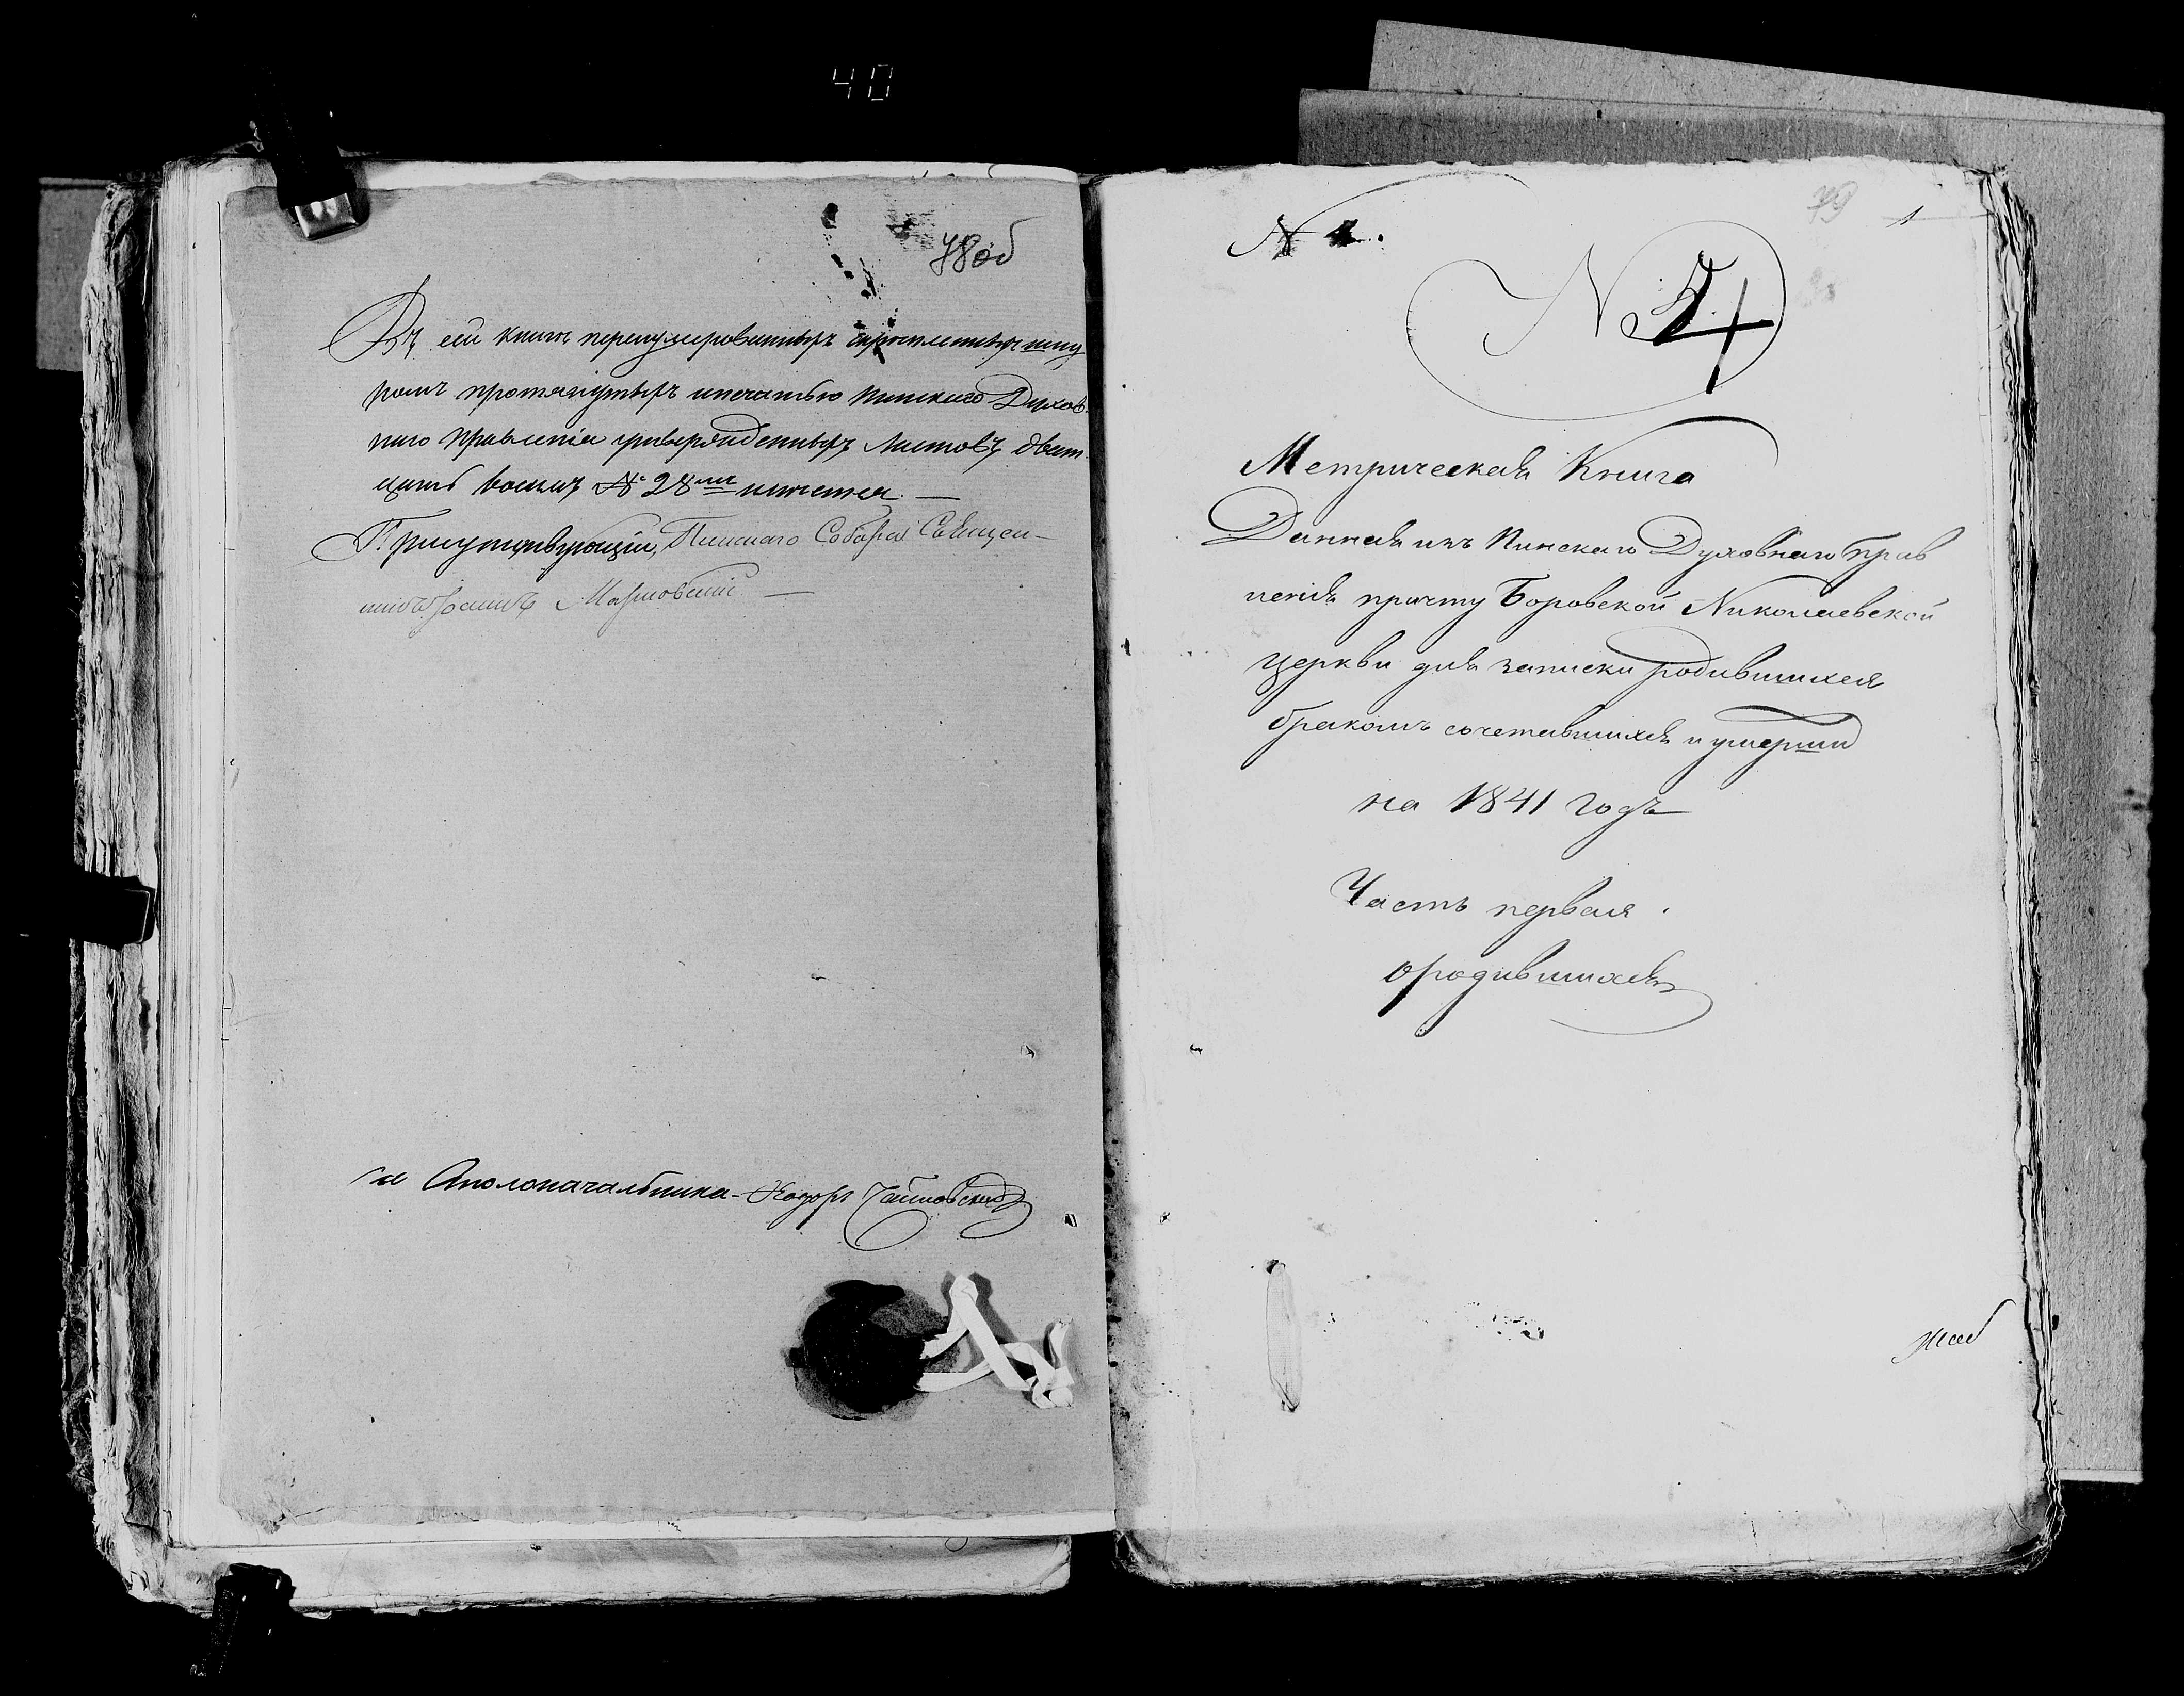 40
78об
Въ сей книгѣ перенумерованныхъ скрепленныхъ шну
ромъ протянутыхъ и печатью Пинскаго Духов
наго Правленія утвержденныхъ листовъ двад
цать восемь № 28мъ имѣется. —
Присутствующій, Пинского Собора Священ-
никъ Марковскій —
Столоначальника Чайковскій
79 1
№
№ 4
Метрическая Книга
Данная изъ Пинскаго Духовнаго Прав
ленія причту Боровской Николаевской
церкви для записки родившихся
бракомъ сочетавшихся и умерши
на 1841 годъ
Часть первая.
о родившихся